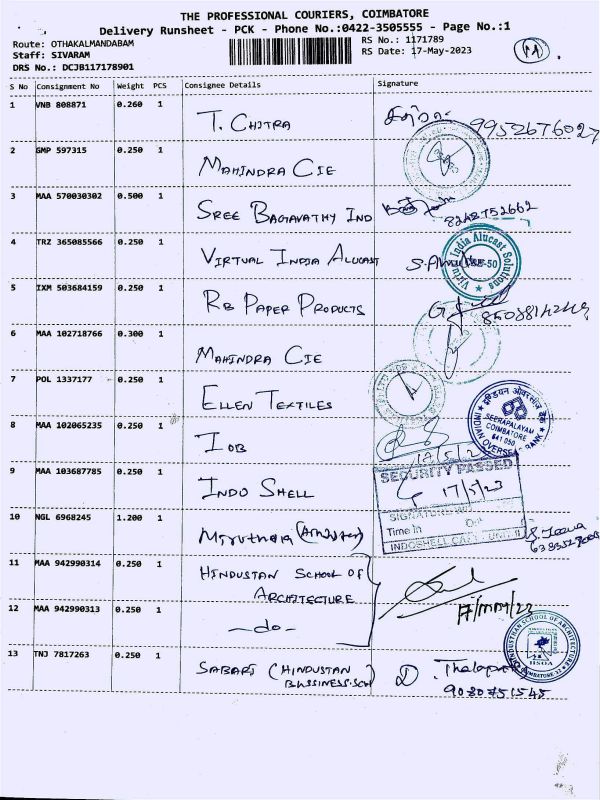 THE PROFESSIONAL COURIERS, COIMBATORE
Delivery Runsheet - PCK - Phone No.:0422-3505555 - Page No.:1
Route: OTHAKALMANDABAM
Staff: SIVARAM
DRS No.: DCJB117178901
RS No.: 1171789
RS Date: 17-May-2023
11
S No Consignment No Weight PCS Consignee Details Signature
1 VNB 808871 0.260 1 T. CHITRA 9952676027
2 GMP 597315 0.250 1 MAHINDRA CIE
3 MAA 570030302 0.500 1 SREE BAGAVATHY IND 8248752662
4 TRZ 365085566 0.250 1 VIRTUAL INDIA ALUCAST
Virtu India Alucast Solutions
5 IXM 503684159 0.250 1 RB PAPER PRODUCTS
6 MAA 102718766 0.300 1 MAHINDRA CIE
7 POL 1337177 0.250 1 ELLEN TEXTILES
8 MAA 102065235 0.250 1 IOB
इण्डियन ओवरसीज़ बैंक
SEERAPALAYAM
COIMBATORE
641 050
INDIAN OVERSEAS BANK
9 MAA 103687785 0.250 1 INDO SHELL
SECURITY PASSED
17/5/23
SIGNATURE
Time In Out
INDOSHELL CAST UNIT II
10 NGL 6968245 1.200 1
11 MAA 942990314 0.250 1 HINDUSTAN SCHOOL OF
ARCHITECTURE
12 MAA 942990313 0.250 1 -do-
13 TNJ 7817263 0.250 1 SABARI (HINDUSTAN
BUSSINESS.SCH
9080751545
HINDUSTHAN SCHOOL OF ARCHITECTURE
HSOA
COIMBATORE-32